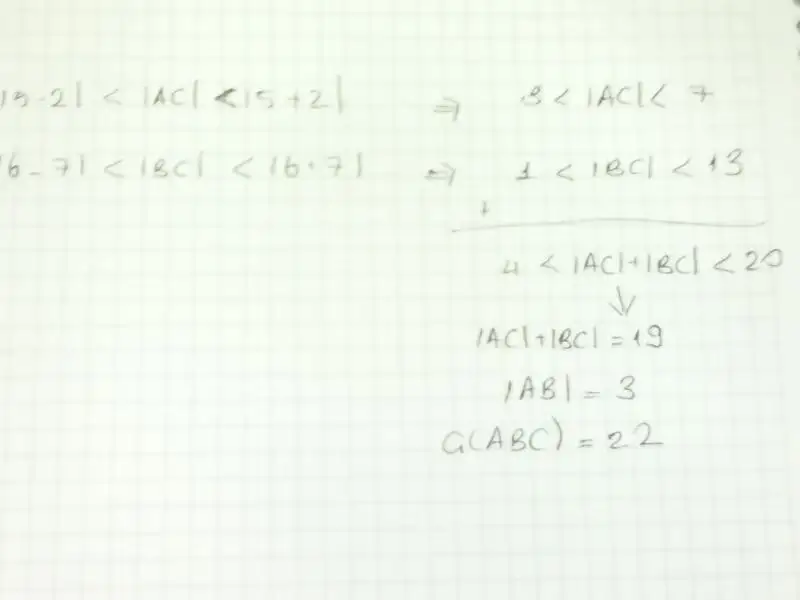 |5-2| < |AC| < |5+2| ⇒ 3 < |AC| < 7
|6-7| < |BC| < |6+7| ⇒ 1 < |BC| < 13
+
4 < |AC|+|BC| < 20
↓
|AC|+|BC| = 19
|AB| = 3
Ç(ABC) = 22